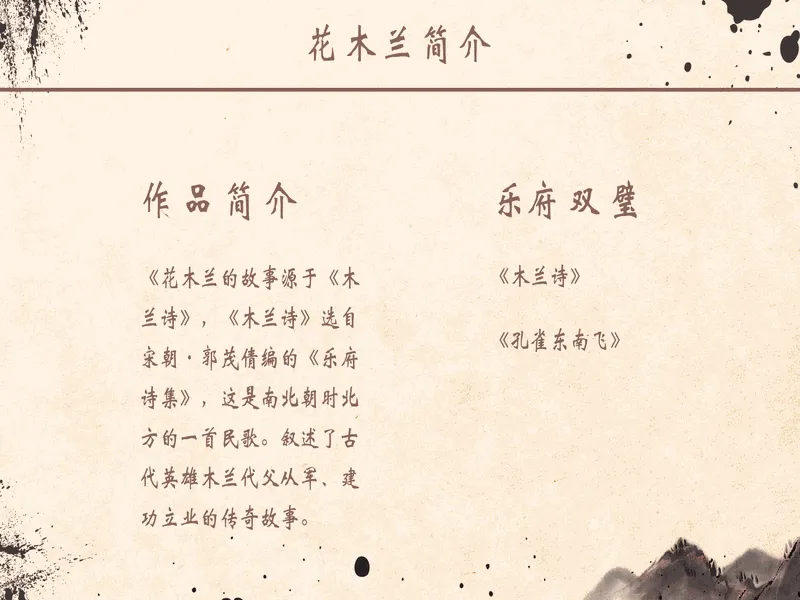 花木兰简介
作品简介
《花木兰的故事源于《木
兰诗》，《木兰诗》选自
宋朝·郭茂倩编的《乐府
诗集》，这是南北朝时北
方的一首民歌。叙述了古
代英雄木兰代父从军、建
功立业的传奇故事。
乐府双璧
《木兰诗》
《孔雀东南飞》